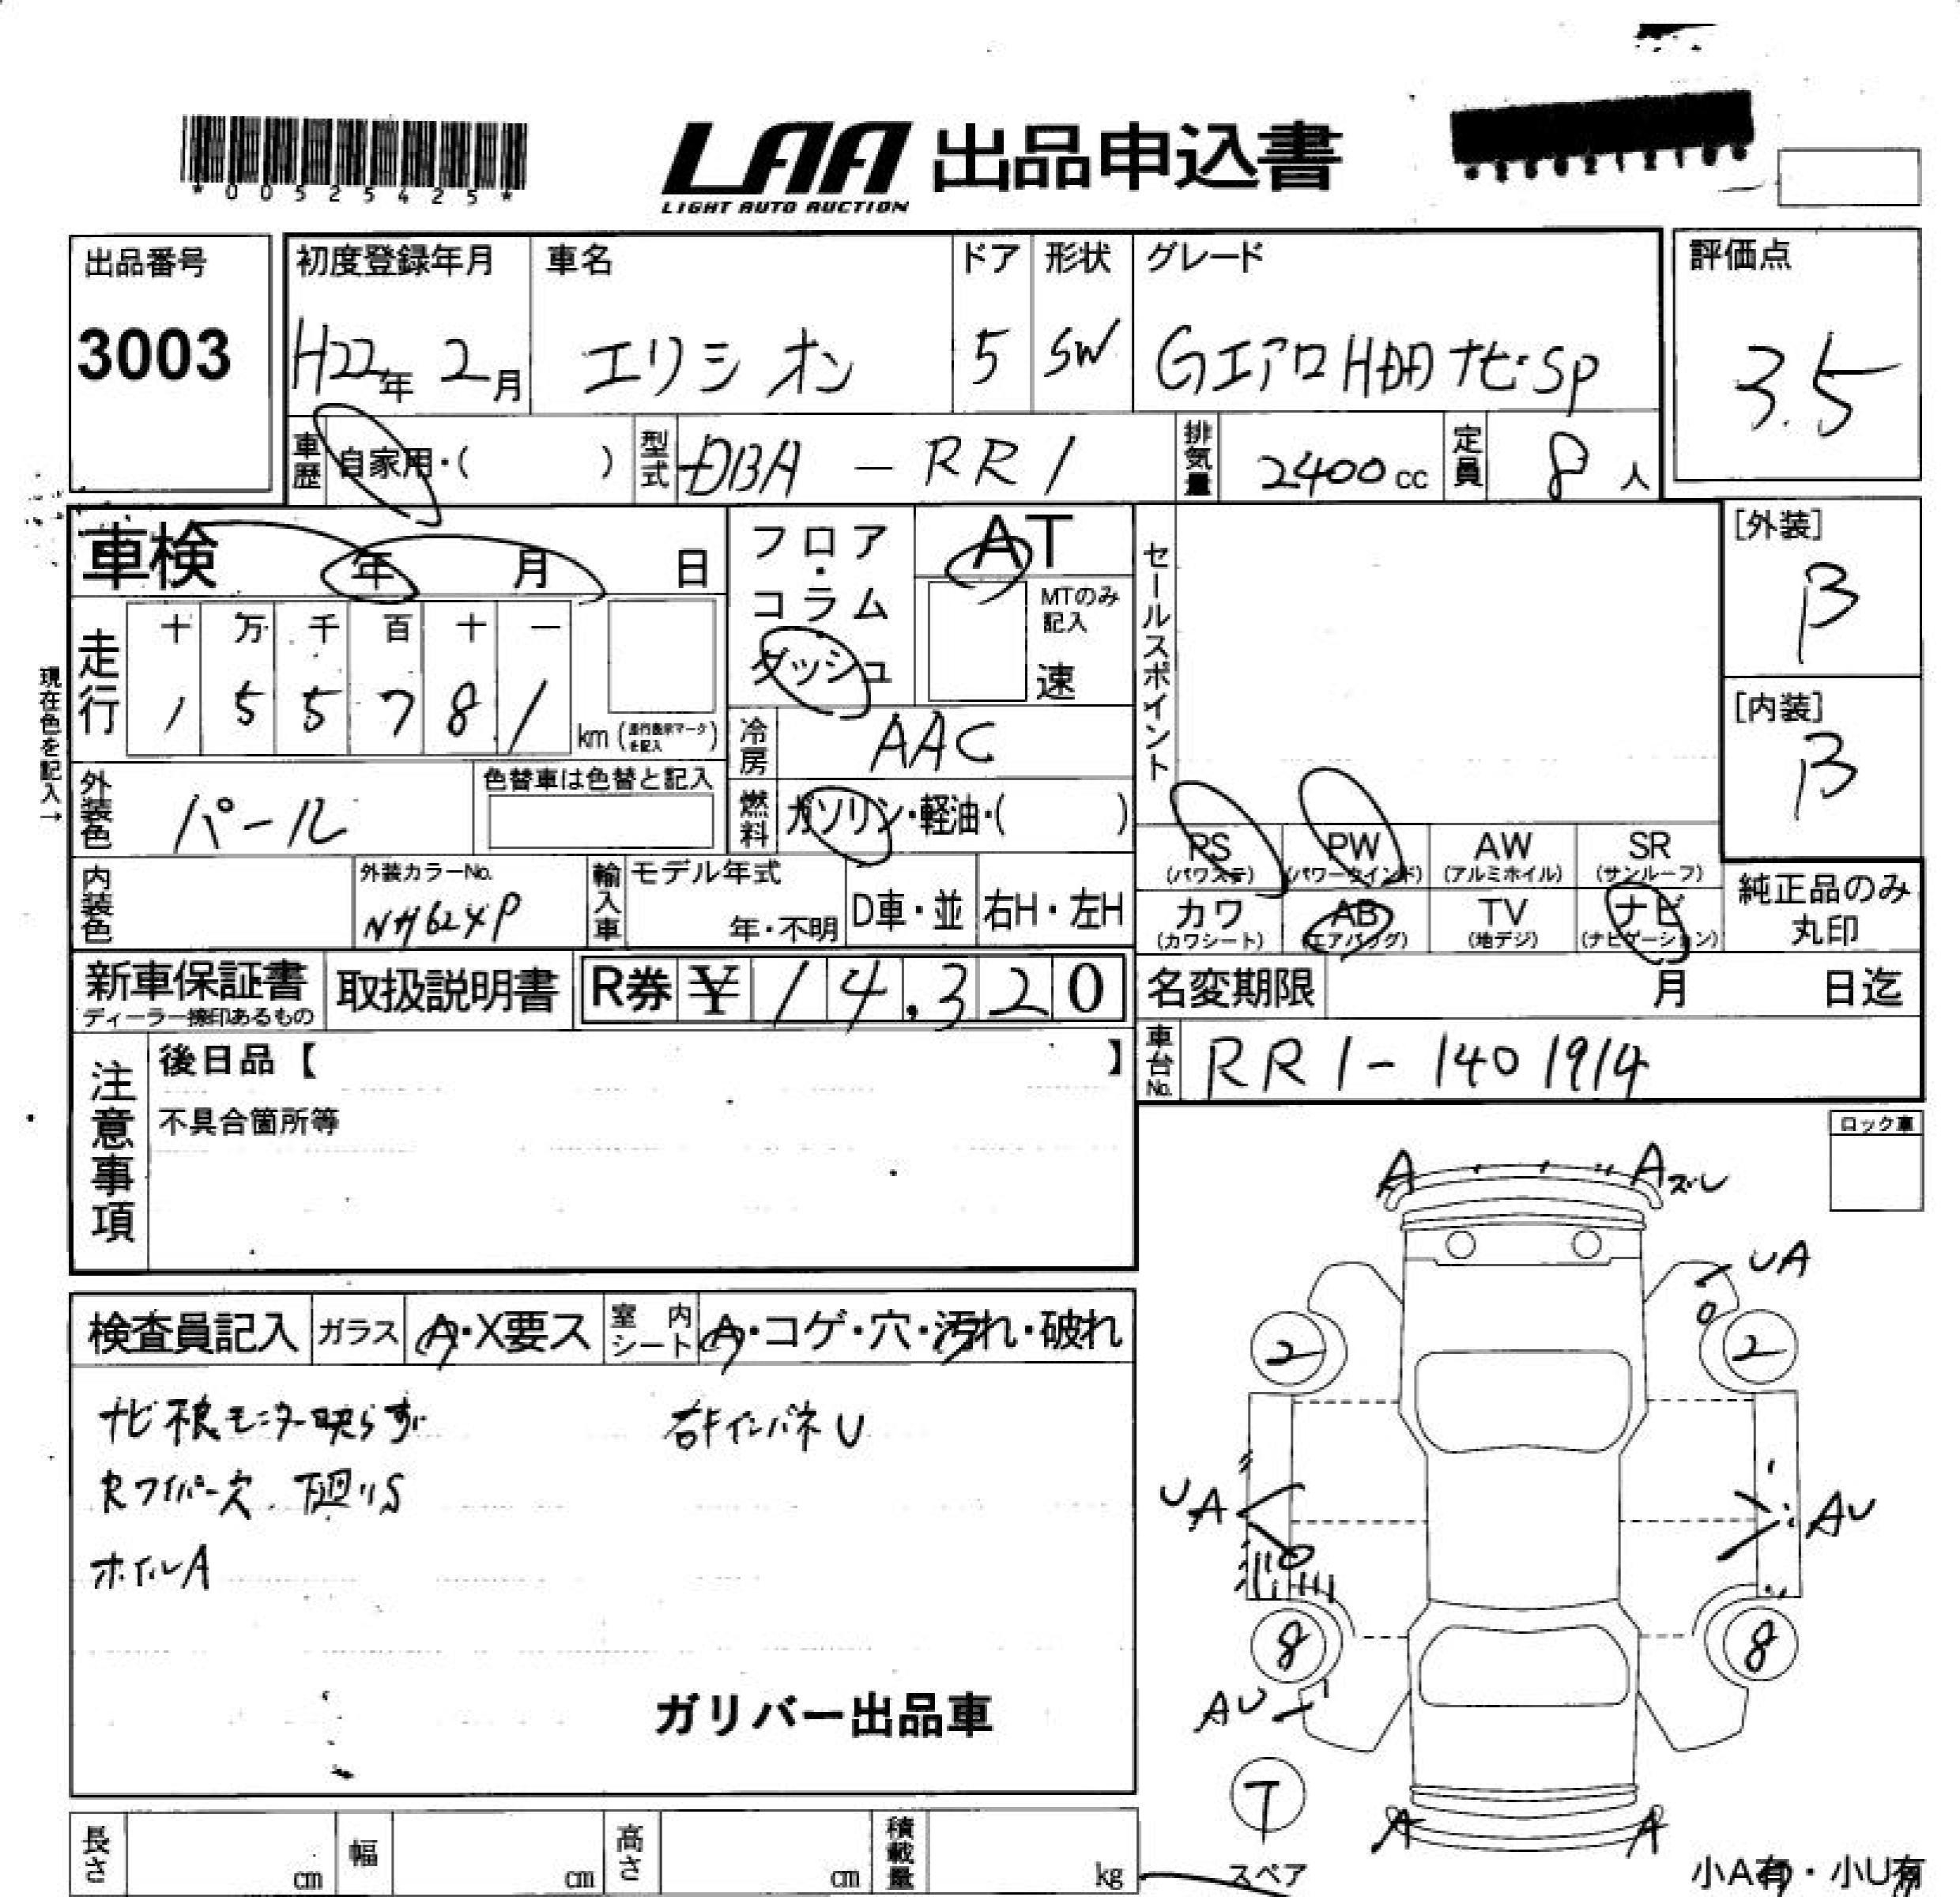 *00525425*
LAA 出品申込書
LIGHT AUTO AUCTION
出品番号 初度登録年月 車名 ドア 形状 グレード 評価点
3003 H22年 2月 エリシオン 5 SW GエアロHDDナビ・SP 3.5
車歴 自家用・( ) 型式 DBA - RR1 排気量 2400cc 定員 8人
車検 年 月 日 フロア・コラム ダッシュ AT MTのみ記入 速 セールスポイント [外装] B
走行 十 万 千 百 十 一
1 5 5 7 8 1 km (走行表示マークを記入)
現在色を記入→
冷房 AAC
[内装] B
外装色 パール 色替車は色替と記入 燃料 ガソリン・軽油・( )
PS (パワステ) PW (パワーウインド) AW (アルミホイル) SR (サンルーフ)
内装色 外装カラーNo. NH624P 輸入車 モデル年式 年・不明 D車・並 右H・左H
カワ (カワシート) AB (エアバッグ) TV (地デジ) ナビ (ナビゲーション) 純正品のみ丸印
新車保証書 取扱説明書 R券 ¥ 14,320 名変期限 月 日迄
ディーラー捺印あるもの
車台No. RR1-1401914
注意事項 後日品【 】
不具合箇所等
ロック車
検査員記入 ガラス A・X要ス 室内シート A・コゲ・穴・汚れ・破れ
ナビ不良モニター映らず
インパネU
ワイパー欠 下廻りS
ホイルA
ガリバー出品車
A
Aズレ
UA
2 2
UA
AU
8 8
AU
T
スペア
A A
長さ cm 幅 cm 高さ cm 積載量 kg
小A有・小U有